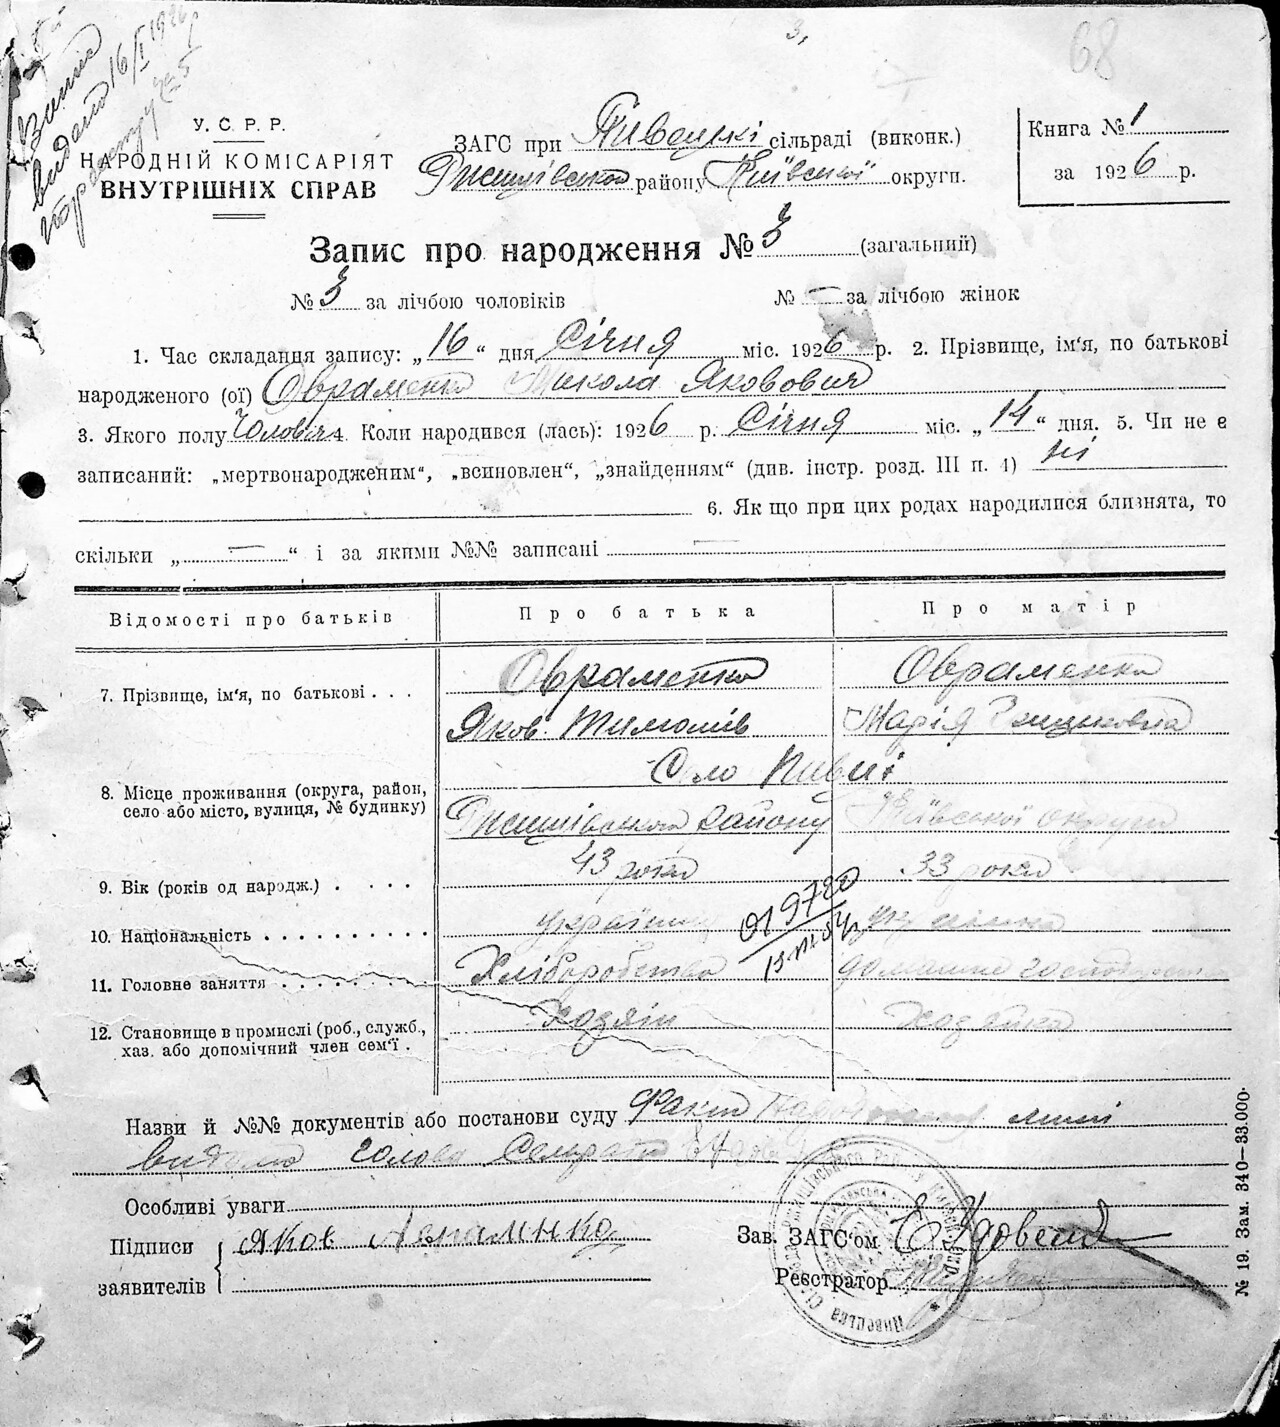 3,
68
Запис
видано 16/I 1926
У. С. Р. Р.
НАРОДНІЙ КОМІСАРІЯТ
ВНУТРІШНІХ СПРАВ
ЗАГС при Пивецькі сільраді (виконк.)
Ржищівського району Київської округи.
Книга № 1
за 1926 р.
Запис про народження № 3 (загальний)
№ 3 за лічбою чоловіків № – за лічбою жінок
1. Час складання запису: „16“ дня Січня міс. 1926 р. 2. Прізвище, ім'я, по батькові
народженого (ої) Овраменко Микола Яковович
3. Якого полу Чоловіч 4. Коли народився (лась): 1926 р. Січня міс. „14“ дня. 5. Чи не є
записаний: „мертвонародженим“, „всиновлен“, „знайденням“ (див. інстр. розд. III п. 4) ні
6. Як що при цих родах народилися близнята, то
скільки „ — “ і за якими №№ записані —
Відомості про батьків Про батька Про матір
7. Прізвище, ім'я, по батькові . . . Овраменко Овраменко
Яков Тимошів Марія
8. Місце проживання (округа, район, село або місто, вулиця, № будинку) Село Пивці
Ржищівського району Київської округи
9. Вік (років од народж.) . . . . 43 роки 33 роки
10. Національність . . . . . . . . . . українец українка
019720
11. Головне заняття . . . . . . . . Хліборобство домашнє господарство
12. Становище в промислі (роб., служб., хаз. або допомічний член сем'ї . Хозяін Хозяйка
Назви й №№ документів або постанови суду Факт
видано голова Сельради
Особливі уваги
Підписи заявителів { Яков Авраменко
Зав. ЗАГС'ом Е Удовенко
Реєстратор
№ 19. Зам. 340—33.000.